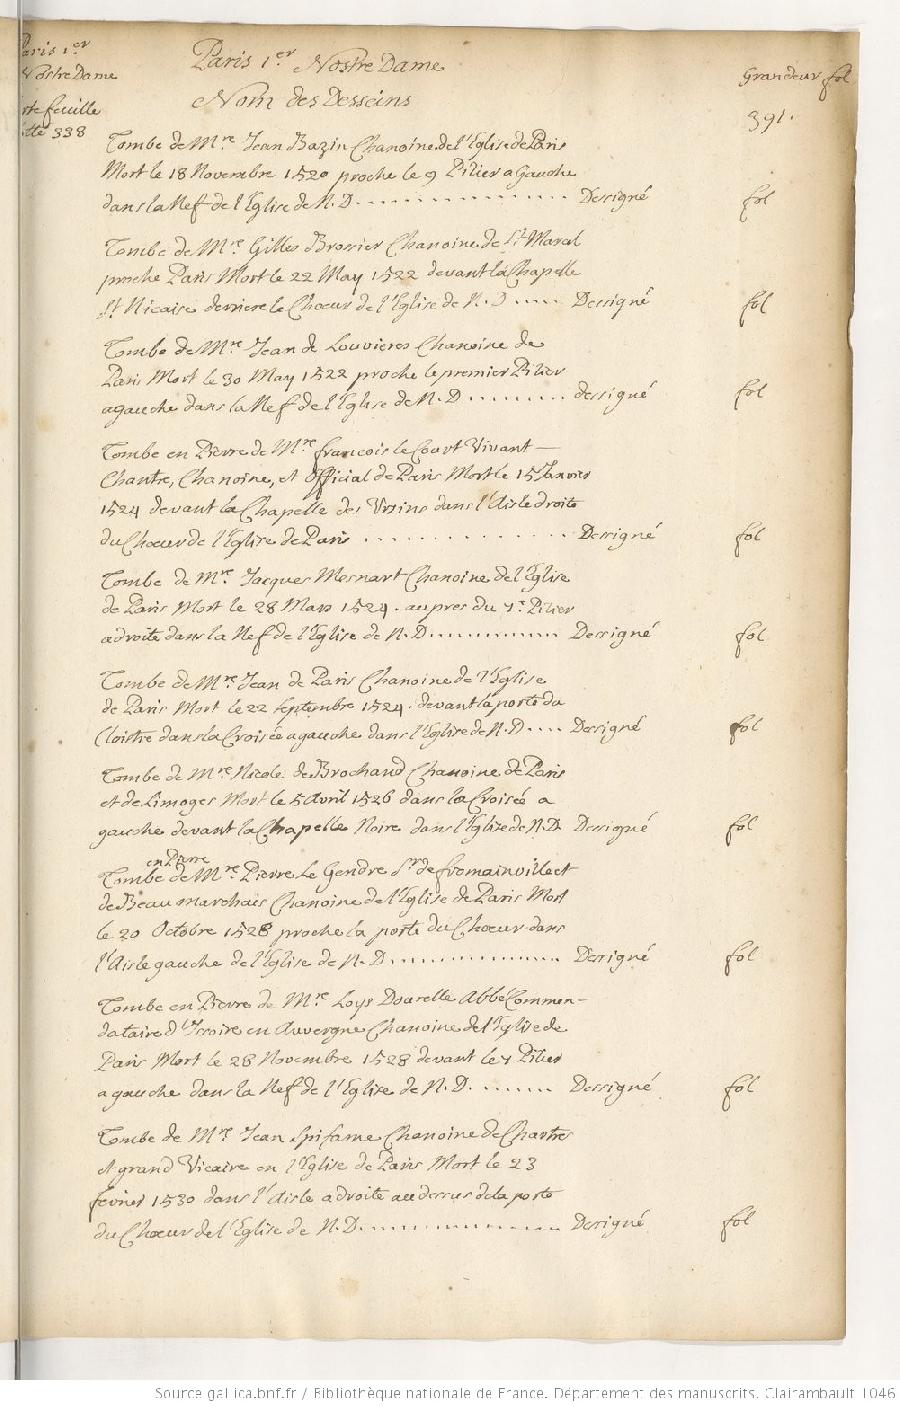 Paris 1.er
Nostre Dame
feuille
338
Paris 1.er Nostre Dame
Nom des Desseins
Grandeur fol
391.
Tombe de M.re Jean Bazin Chanoine de l'Eglise de Paris
Mort le 18 Novembre 1520 proche le 9 Pilier a Gauche
dans la Nef de l'Eglise de N. D. ................ Dessigné fol
Tombe de M.re Gilles Brossier Chanoine de S.t Marcel
proche Paris Mort le 22 May 1522 devant la Chapelle
S.t Nicaise derriere le Choeur de l'Eglise de N. D ..... Dessigné fol
Tombe de M.re Jean de Louvieres Chanoine de
Paris Mort le 30 May 1522 proche le premier Pilier
a gauche dans la Nef de l'Eglise de N. D ......... dessigné fol
Tombe en Pierre de M.re francois le Court Vivant —
Chantre, Chanoine, et Official de Paris Mort le 15 Janvier
1524 devant la Chapelle des Ursins dans l'Aisle droite
du Choeur de l'Eglise de Paris ............. Dessigné fol
Tombe de M.re Jacques Mesnart Chanoine de l'Eglise
de Paris Mort le 28 Mars 1524. aupres du 7.e Pilier
a droite dans la Nef de l'Eglise de N. D ............. Dessigné fol
Tombe de M.re Jean de Paris Chanoine de l'Eglise
de Paris Mort le 22 septembre 1524. devant la porte du
Cloistre dans la Croisée a gauche dans l'Eglise de N. D .... Dessigné fol
Tombe de M.re Nicole de Brochand Chanoine de Paris
et de Limoges Mort le 5 Avril 1526 dans la Croisée a
gauche devant la Chapelle Noire dans l'Eglise de N. D. Dessigné fol
en Pierre
Tombe de M.re Pierre Le Gendre S.r de fremainville et
de Beaumarchais Chanoine de l'Eglise de Paris Mort
le 20 Octobre 1528 proche la porte du Choeur dans
l'Aisle gauche de l'Eglise de N. D ................ Dessigné fol
Tombe en Pierre de M.re Loys Dourelle Abbé Commen-
dataire d'Issoire en Auvergne Chanoine de l'Eglise de
Paris Mort le 28 Novembre 1528 devant le 7 Pilier
a gauche dans la Nef de l'Eglise de N. D. ....... Dessigné fol
Tombe de M.re Jean Spifame Chanoine de Chartres
et grand Vicaire en l'Eglise de Paris Mort le 23
fevrier 1530 dans l'Aisle a droite au dessus de la porte
du Choeur de l'Eglise de N. D. .................. Designé fol
Source gallica.bnf.fr / Bibliothèque nationale de France. Département des manuscrits. Clairambault 1046